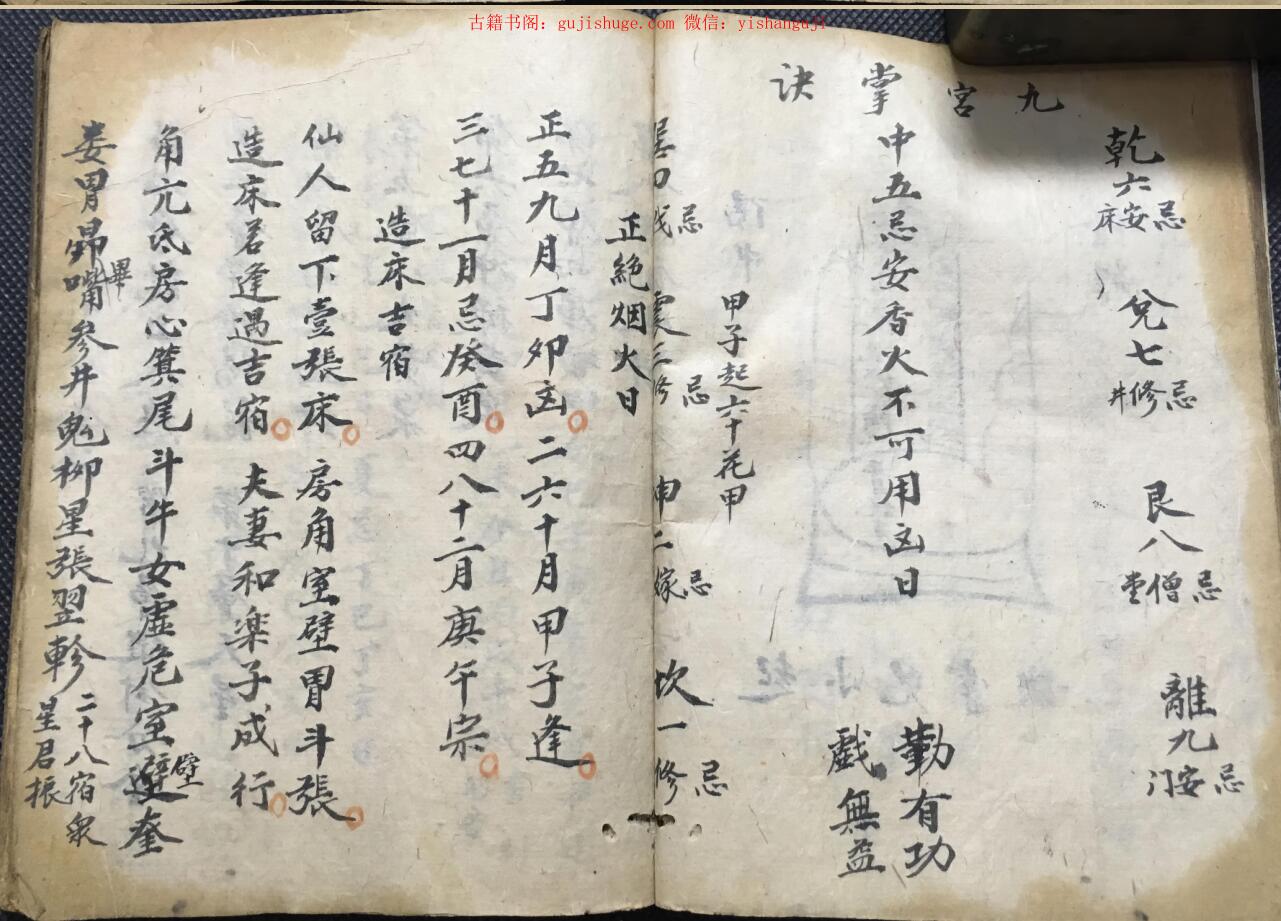 古籍书阁：gujishuge.com 微信：yishanguji
九宮掌訣
乾六忌安床
兌七忌修井
艮八忌僧堂
離九忌安门
中五忌安香火不可用凶日
勤有功
戲無益
甲子起六十花甲
震三忌修
坤二忌嫁
坎一忌修
正絕烟火日
正五九月丁卯凶二六十月甲子逢
三七十一月忌癸酉四八十二月庚午宗
造床吉宿
仙人留下壹張床房角室壁胃斗張
造床若逢遇吉宿夫妻和楽子成行
角亢氐房心箕尾斗牛女虛危室壁奎
婁胃昴畢嘴參井鬼柳星張翌軫二十八宿衆星君振